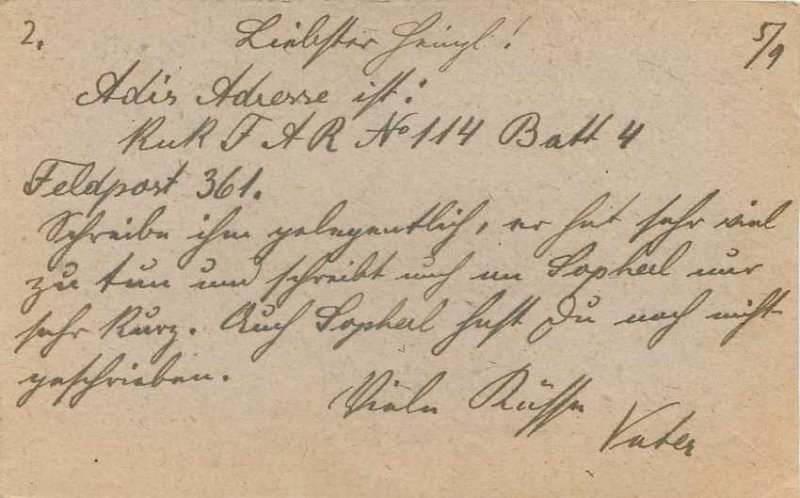 2. Liebster Heinzl! 5/9
Adis Adresse ist:
KuK F A R No 114 Batt 4
Feldpost 361.
Schreibe ihm gelegentlich, er hat sehr viel
zu tun und schreibt auch an Sopherl nur
sehr kurz. Auch Sopherl hast Du noch nicht
geschrieben.
Viele Küsse
Vater